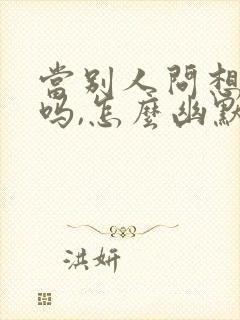 當别人問想
吗,怎麼幽默
洪妍